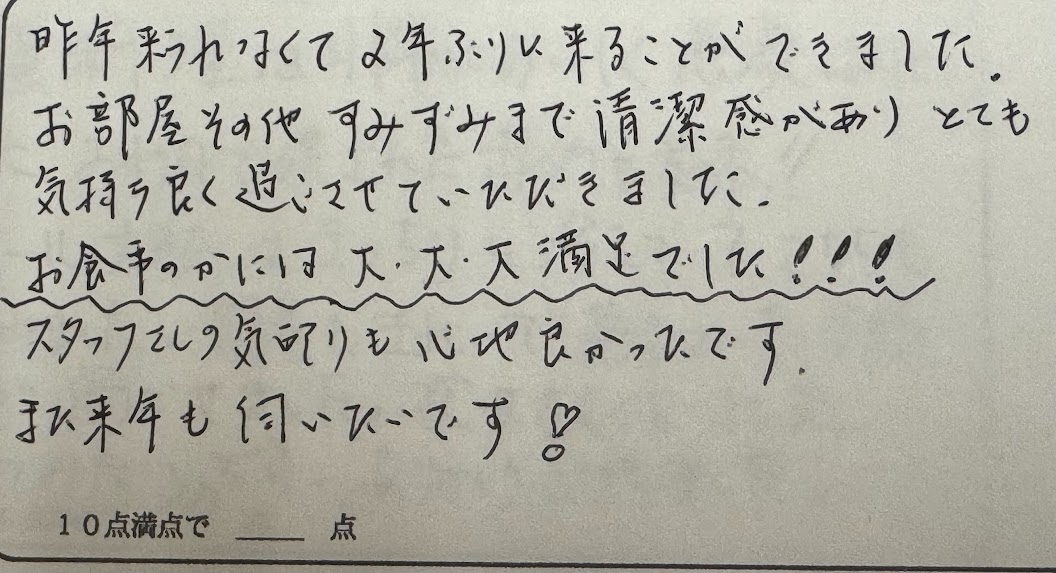 昨年来られなくて2年ぶりに来ることができました。
お部屋その他すみずみまで清潔感があり とても
気持ち良く過ごさせていただきました。
お食事のかには 大・大・大満足でした!!!
スタッフさんの気配りも心地良かったです。
また来年も伺いたいです♡
10点満点で ____ 点